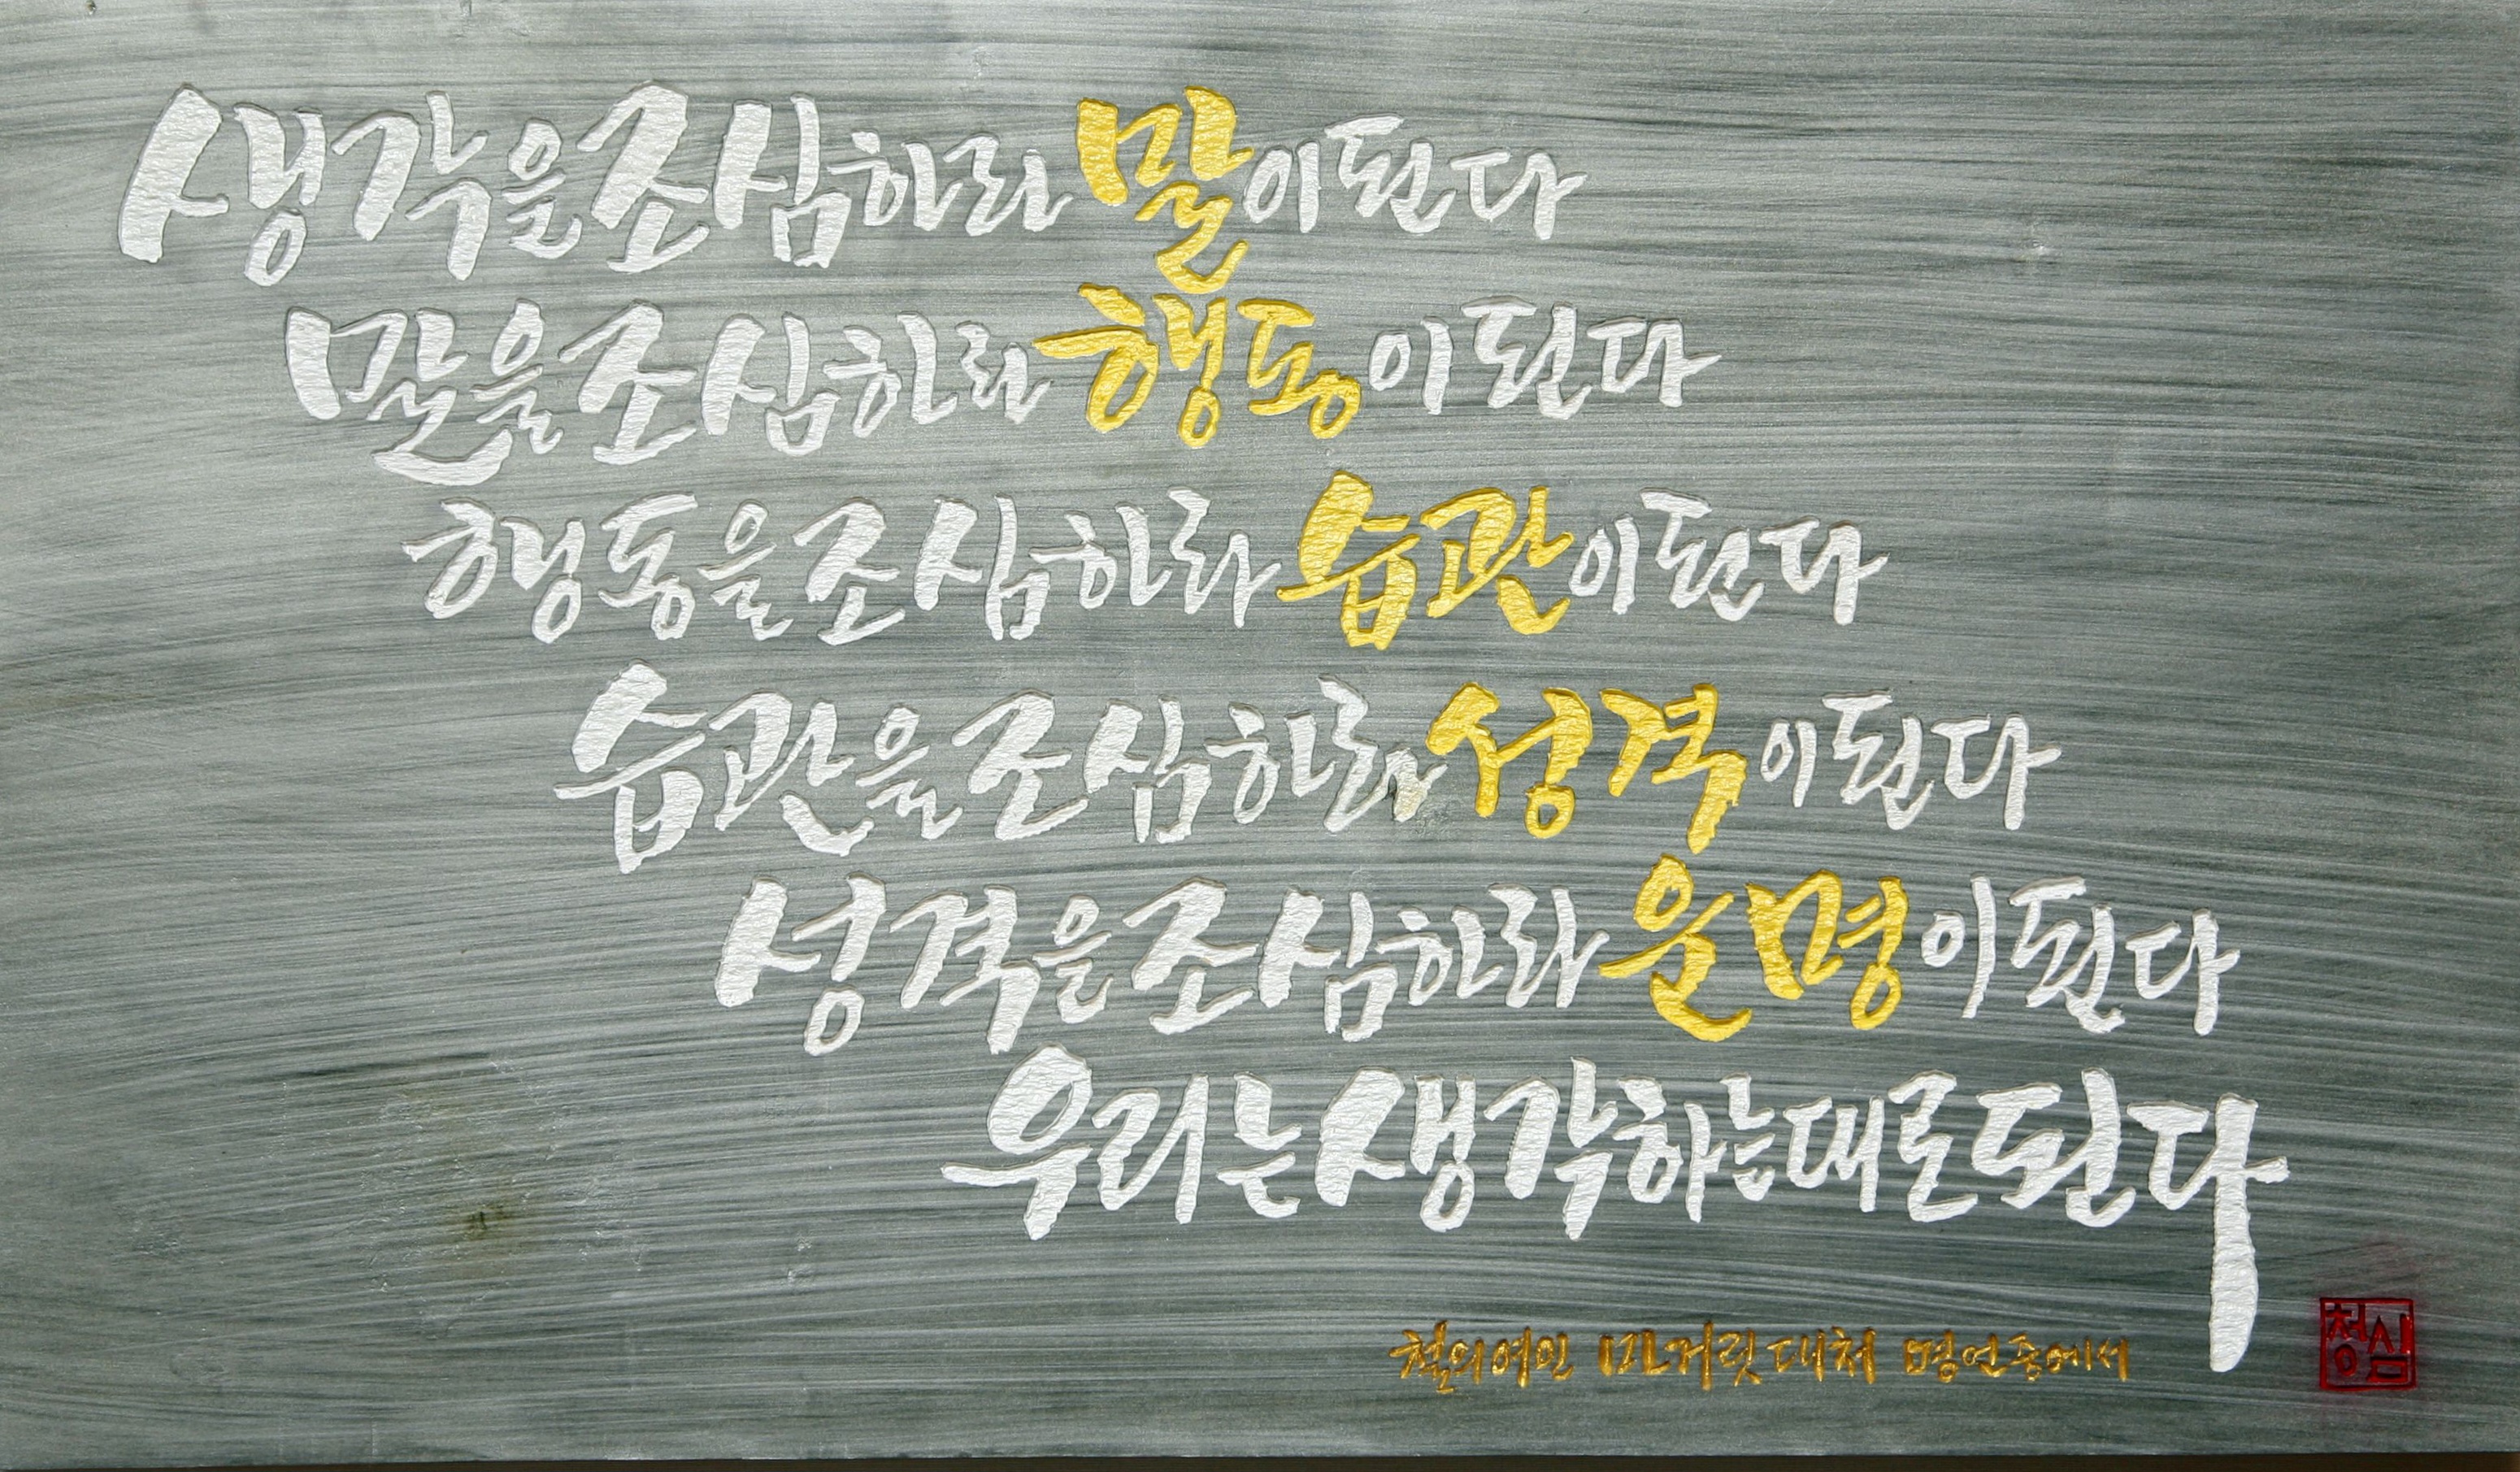 생각을 조심하라 말이 된다
말을 조심하라 행동이 된다
행동을 조심하라 습관이 된다
습관을 조심하라 성격이 된다
성격을 조심하라 운명이 된다
우리는 생각하는대로 된다
철의여인 마거릿대처 명언중에서
청심